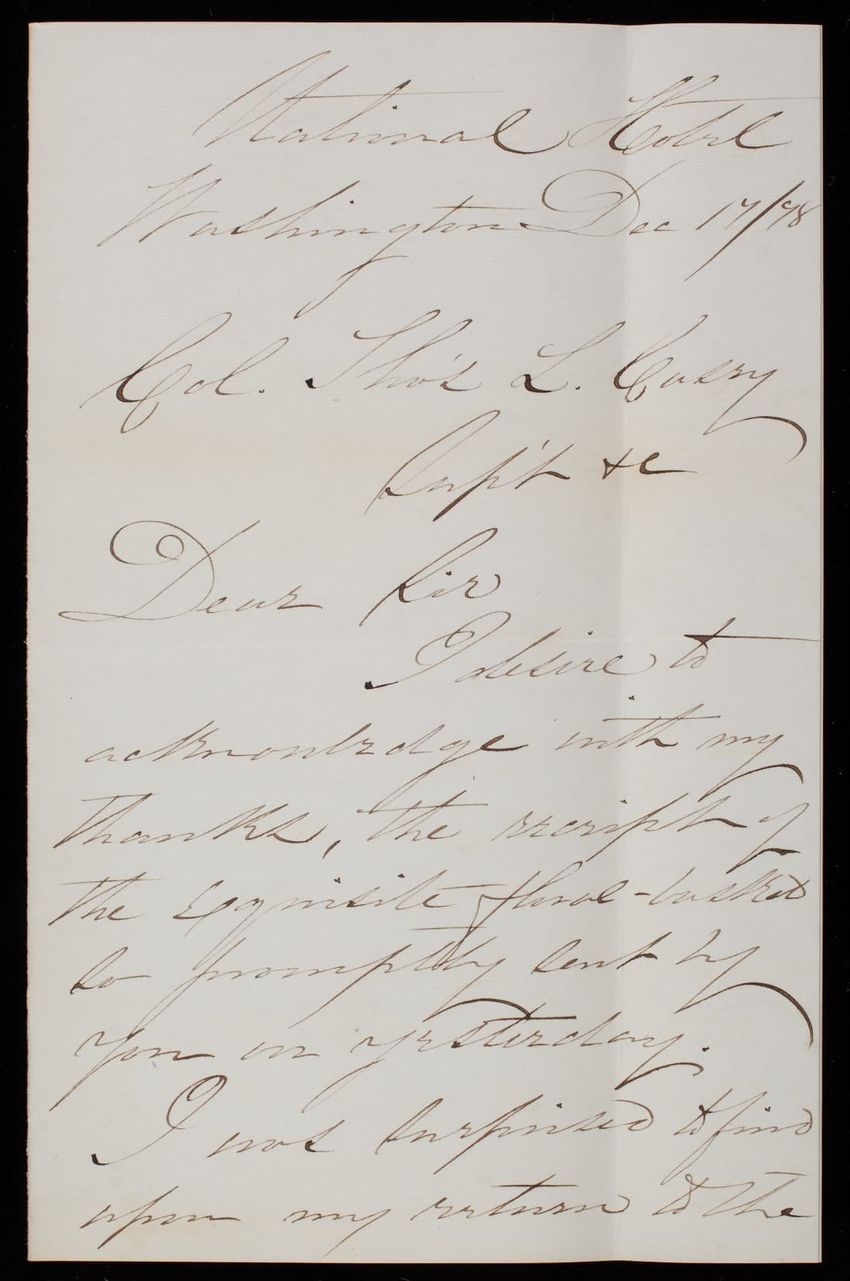 National Hotel
Washington Dec 17/78
Col. Tho's L. Casey
Sup't &c
Dear Sir
I desire to
acknowledge with my
thanks, the receipt of
the exquisite floral-basket
so promptly sent by
you on yesterday.
I was surprised to find
upon my return to the